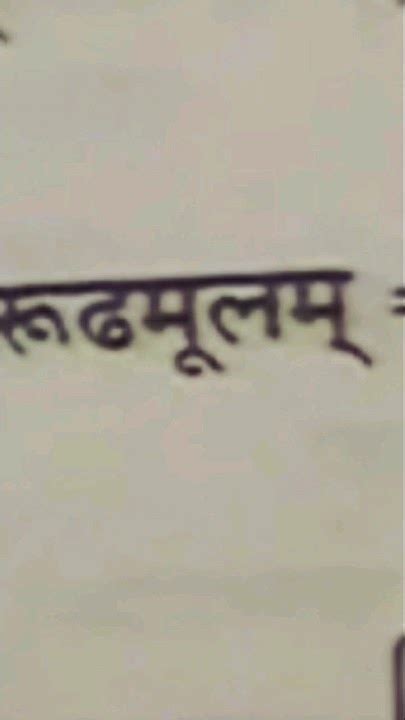 रूढमूलम् =